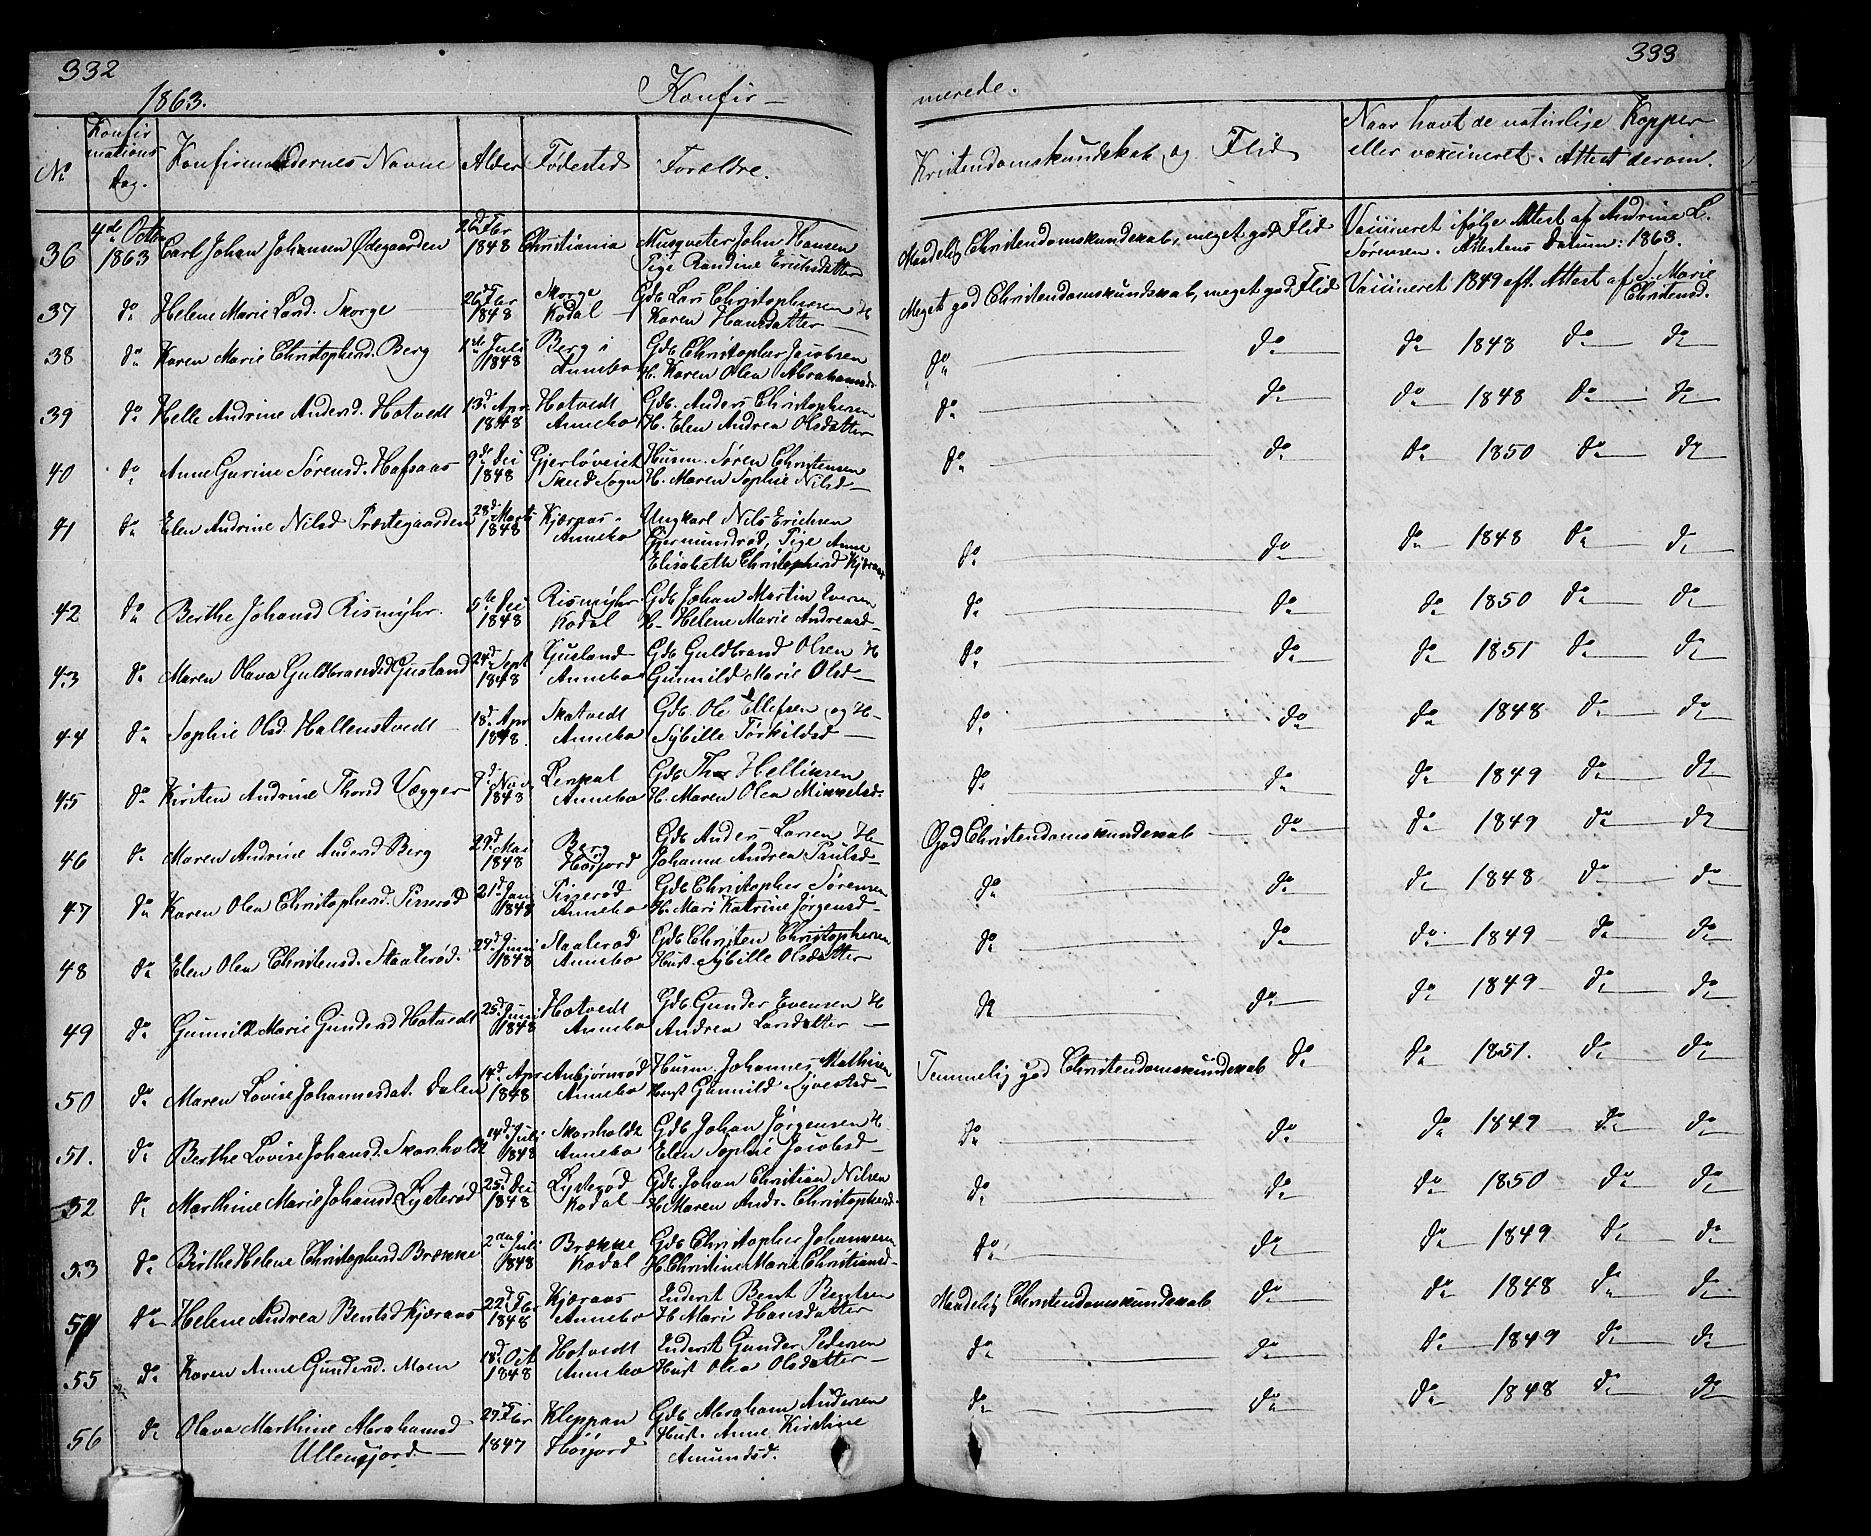 332
1863.
Konfir-
No
Konfir
mations
Dag.
Konfirmandernes Navne
Alder
Fødested
Forældre.
36
4de Octbr
1863
Carl Johan Johansen Ødegaarden
1848
Christiania
Musqveter John Hansen
Pige Randine Erichsdatter
37
do
Helene Marie Larsd. Skorge
1848
Skorge
Kodal
Gdb Lars Christophersen H
Karen Hansdatter
38
do
Karen Marie Christophersd. Berg
1ste Juli
1848
Berg i
Annebo
Gdb Christopher Jacobsen
H. Karen Olea Abrahamsd
39
do
Helle Andrine Andersd. Hotvedt
13d Apr
1848
Hotvedt
Annebo
Gdb. Anders Christophersen
H. Elen Andrea Olsdatter
40
do
Anne Gurine Sørensd. Hafsaas
9de Dec
1848
Sogn
Husm. Søren Christensen
H. Maren Sophie Nilsd
41
do
Elen Andrine Nilsd Præstegaarden
28d Marts
1848
Kjæraas
Annebo
Ungkarl Nils Erichsen
Gjermundrød, Pige Anne
Elisabeth Christophersd Kjæraas
42
do
Berthe Johansd Rismyhr.
5te Dec
1848
Rismyhr
Kodal
Gdb Johan Martin Evensen
H. Helene Marie Andreasd
43
do
Maren Olava Guldbrandsd Gusland
24d Sept
1848
Gusland
Annebo
Gdb Guldbrand Olsen H
Gunnild Marie Olsd
44
do
Sophie Olsd. Hallenstvedt
18d Apr
1848
Skatvedt
Annebo
Gdb. Ole Ellefsen og H
Sybille Torkildsd
45
do
Kirsten Andrine Thorsd Vegger
9d Nov
1848
Annebo
Gdb Thor Hellissen
H. Maren Olea Mikkelsd
46
do
Maren Andrine Andersd Berg
29d Mai
1848
Berg
Høsjord
Gdb Anders Larsen H
Johanne Andrea Paulsd
47
do
Karen Olea Christophersd. Pisserød
21d Janr
1848
Pisserød
Annebo
Gdb Christopher Sørensen
H. Mari Katrine Jørgensd
48
do
Elen Olea Christensd. Staalerød.
29d Juni
1848
Staalerød
Annebo
Gdb Christen Christophersen
Hust Sybille Olsdatter
49
do
Gunnild Marie Gundersd Hotvedt
25d Juni
1848
Hotvedt
Annebo
Gdb Gunder Evensen H
Andrea Larsdatter
50
do
Maren Lovise Johannesdat. Dalen
14d Apr
1848
Anbjønrød
Annebo
Husm. Johannes Mathisen
Hust Gunnild Syvertsd
51.
do
Berthe Lovise Johansd. Skarsholdt
14d Juli
1848
Skarsholdt
Annebo
Gdb Johan Jørgensen H
Elen Sophie Jacobsd
52
do
Marthine Marie Johansd Lysterød
25d Dec
1848
Lysterød
Kodal
Gdb. Johan Christian Nilsen
H Maren Andr. Christophersd.
53
do
Birthe Helene Christophersd Brække
2den Juli
1848
Brække
Kodal
Gdb Christopher Johannesen
H. Christine Marie Christiansd
54
do
Helene Andrea Bentsd Kjæraas
22d Fbr
1848
Kjæraas
Annebo
Inderst Bent Bentsen
H Mari Hansdatter
55
do
Karen Anne Gundersd. Moen
18d Oct
1848
Hotvedt
Annebo
Inderst Gunder Pedersen
Hust Olea Olsdatter
56
do
Olava Marthine Abrahamsd
Ullensjord
27d Fbr
1847
Kleppan
Høsjord
Gdb Abraham Andersen
Hust. Anne Kirstine
Amundsd.
333
merede.
Kristendomskundskab og Flid
Naar havt de naturlige Kopper
eller vaxcineret. Attest derom.
Maadelig Christendomskundskab, meget god Flid
Vaccineret ifølge Attest af Andrine L.
Sørensen. Attestens Datum: 1863.
Meget god Christendomskundskab, meget god Flid
Vaccineret 1849 eft. Attest af S. Marie
Christensd.
do do do 1848 do do
do do do 1848 do do
do do do 1850 do do
do do do 1848 do do
do do do 1850 do do
do do do 1851 do do
do do do 1848 do do
do do do 1849 do do
God Christendomskundskab do do 1849 do do
do do do 1848 do do
do do do 1849 do do
do do do 1849 do do
Temmelig god Christendomskundskab do do 1851. do do
do do do 1849 do do
do do do 1850 do do
do do do 1849 do do
Maadelig Christendomskundskab do do 1848 do do
do do do 1849 do do
do do do 1848 do do